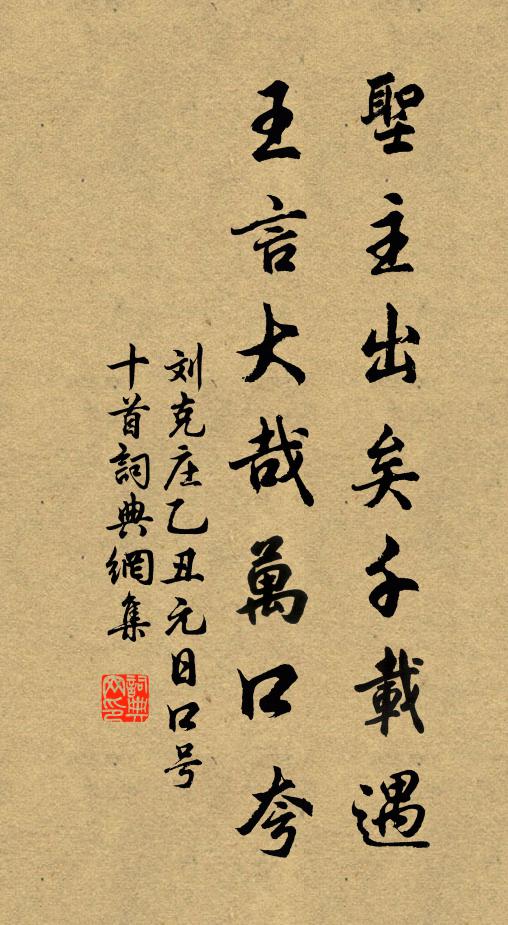 聖主出矣千載遇
王言大哉萬口夸
刘克庄乙丑元日口号
十首詞典網集
詞典